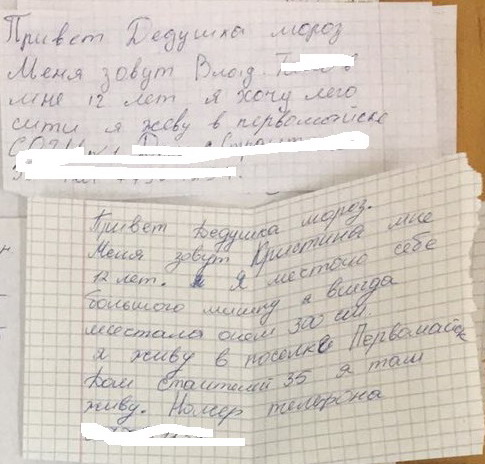 Привет Дедушка мороз
Меня зовут Влад
мне 12 лет я хочу лего
сити я жеву в первомайске
Привет Дедушка мороз.
Меня зовут Кристина мне
12 лет. Я местаю себе
большого мишку я всегда
местала онем 300 см.
я живу в поселке Первомайск
Дом 35 я там
живу. Номер телефона